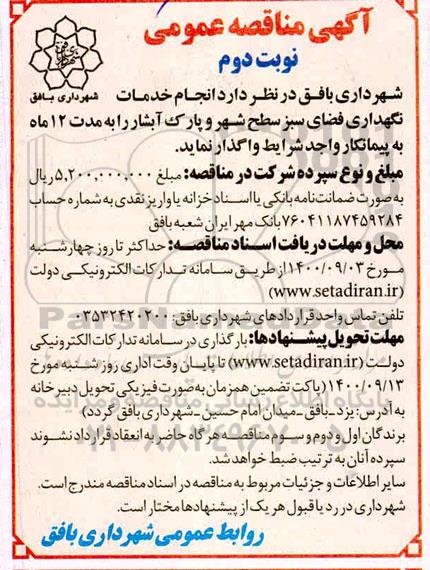 آگهی مناقصه عمومی
نوبت دوم
شهرداری بافق
شهرداری بافق در نظر دارد انجام خدمات
نگهداری فضای سبز سطح شهر و پارک آبشار را به مدت ۱۲ ماه
به پیمانکار واجد شرایط واگذار نماید.
مبلغ و نوع سپرده شرکت در مناقصه: مبلغ ۵,۲۰۰,۰۰۰,۰۰۰ ریال
به صورت ضمانت نامه بانکی یا اسناد خزانه یا واریز نقدی به شماره حساب
۷۶۰۴۱۱۸۷۴۵۹۲۸۴ بانک مهر ایران شعبه بافق
محل و مهلت دریافت اسناد مناقصه: حداکثر تا روز چهارشنبه
مورخ ۱۴۰۰/۰۹/۰۳ از طریق سامانه تدارکات الکترونیکی دولت
(www.setadiran.ir)
تلفن تماس واحد قراردادهای شهرداری بافق: ۰۳۵۳۲۴۲۰۲۰۰
مهلت تحویل پیشنهادها: بارگذاری در سامانه تدارکات الکترونیکی
دولت (www.setadiran.ir) تا پایان وقت اداری روز شنبه مورخ
۱۴۰۰/۰۹/۱۳ (پاکت تضمین همزمان به صورت فیزیکی تحویل دبیرخانه
به آدرس: یزد ـ بافق ـ میدان امام حسین ـ شهرداری بافق گردد)
برندگان اول و دوم و سوم مناقصه هرگاه حاضر به انعقاد قرارداد نشوند
سپرده آنان به ترتیب ضبط خواهد شد.
سایر اطلاعات و جزئیات مربوط به مناقصه در اسناد مناقصه مندرج است.
شهرداری در رد یا قبول هر یک از پیشنهادها مختار است.
روابط عمومی شهرداری بافق